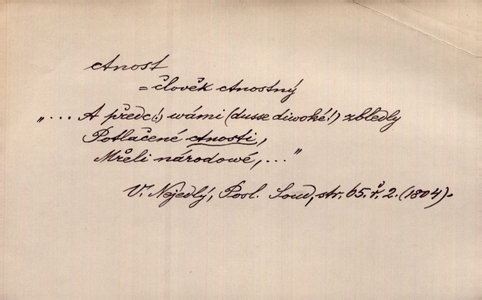 ctnost
= člověk ctnostný
"... A předc(!) wámi (dusse diwoké!) zbledly
Potlačené ctnosti,
Mřeli národowé, ..."
V. Nejedlý, Posl. Soud, str. 65. ř. 2. (1804).